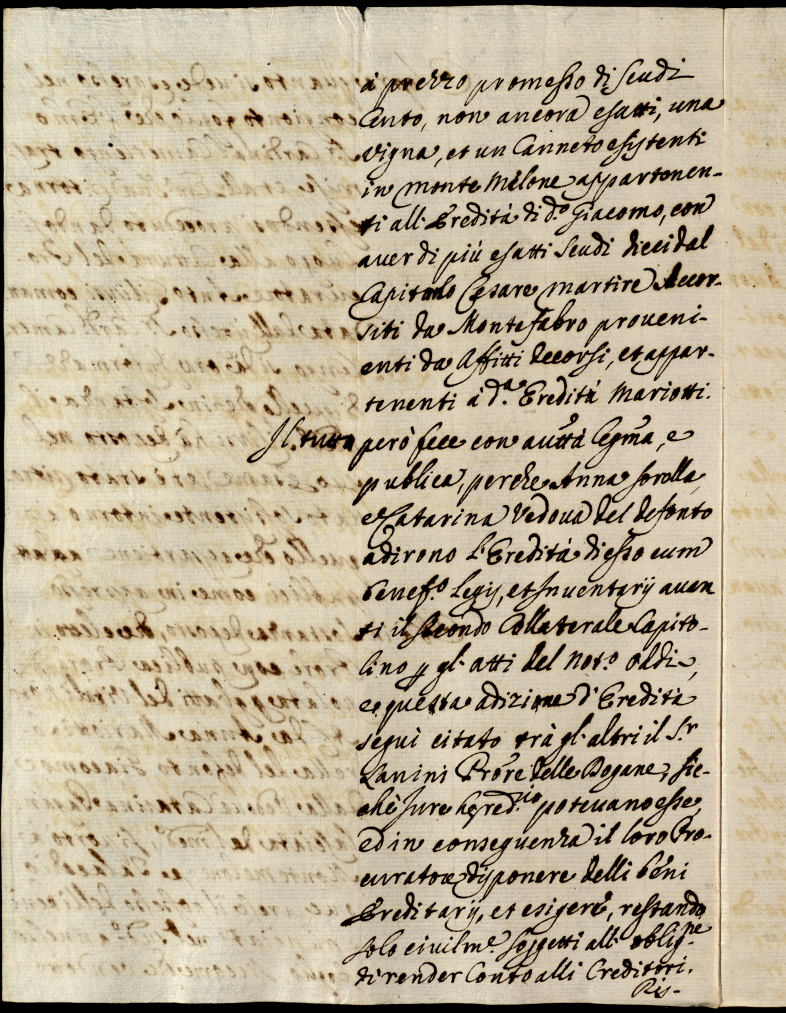 à prezzo promesso di scudi
Cento, non ancora esatti, una
Vigna, et un Canneto esistenti
in monte Melone appartenen-
ti all'Eredità di d.º Giacomo, con
aver di più esatti scudi dieci dal
Capitolo Cesare martire decor-
siti da Montefabro proveni-
enti da Affitti decorsi, et appar-
tenenti à d.ª Eredità Mariotti.
Il tutto però fece con autt.tà legma, e
publica, perche Anna sorella,
e Catarina Vedova del defonto
adirono l'Eredità di esso cum
benef.º legis, et Inventarij avan
ti il secondo Collaterale Capito-
lino p gl'atti del Not.º Oddi,
e questa adizione d'Eredità
segui citato trà gl'altri il S.r
Zanini Prore delle Dogane, sic-
che Jure hgred.rio potevano esse,
ed in conseguenza il loro Pro-
curatore disponere delli beni
Ereditarij, et esigere, restando
solo civilm.e soggetti all'oblig.ne
di render Conto alli Creditori.
Ris-